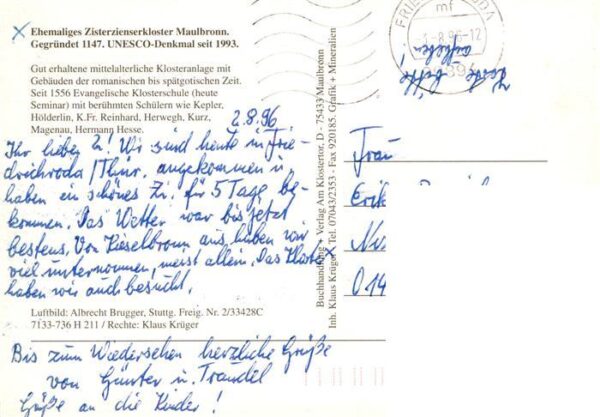 x Ehemaliges Zisterzienserkloster Maulbronn.
Gegründet 1147. UNESCO-Denkmal seit 1993.
Gut erhaltene mittelalterliche Klosteranlage mit
Gebäuden der romanischen bis spätgotischen Zeit.
Seit 1556 Evangelische Klosterschule (heute
Seminar) mit berühmten Schülern wie Kepler,
Hölderlin, K.Fr. Reinhard, Herwegh, Kurz,
Magenau, Hermann Hesse.
2.8.96
Ihr lieben 2! Wir sind heute in Frie-
drichroda/Thür. angekommen u.
haben ein schönes Zi. für 5 Tage be-
kommen. Das Wetter war bis jetzt
bestens. Von Kieselbronn aus haben wir
viel unternommen, meist allein. Das Kloster x
haben wir auch besucht.
Luftbild: Albrecht Brugger, Stuttg. Freig. Nr. 2/33428C
7133-736 H 211 / Rechte: Klaus Krüger
Bis zum Wiedersehen herzliche Grüße
von Günter u. Traudel
Grüße an die Kinder!
Buchhandlung + Verlag Am Klostertor, D - 75433 Maulbronn
Inh. Klaus Krüger, Tel. 07043/2353 - Fax 920185. Grafik + Mineralien
mf
Karte bitte
aufheben!
Frau
Erik
014